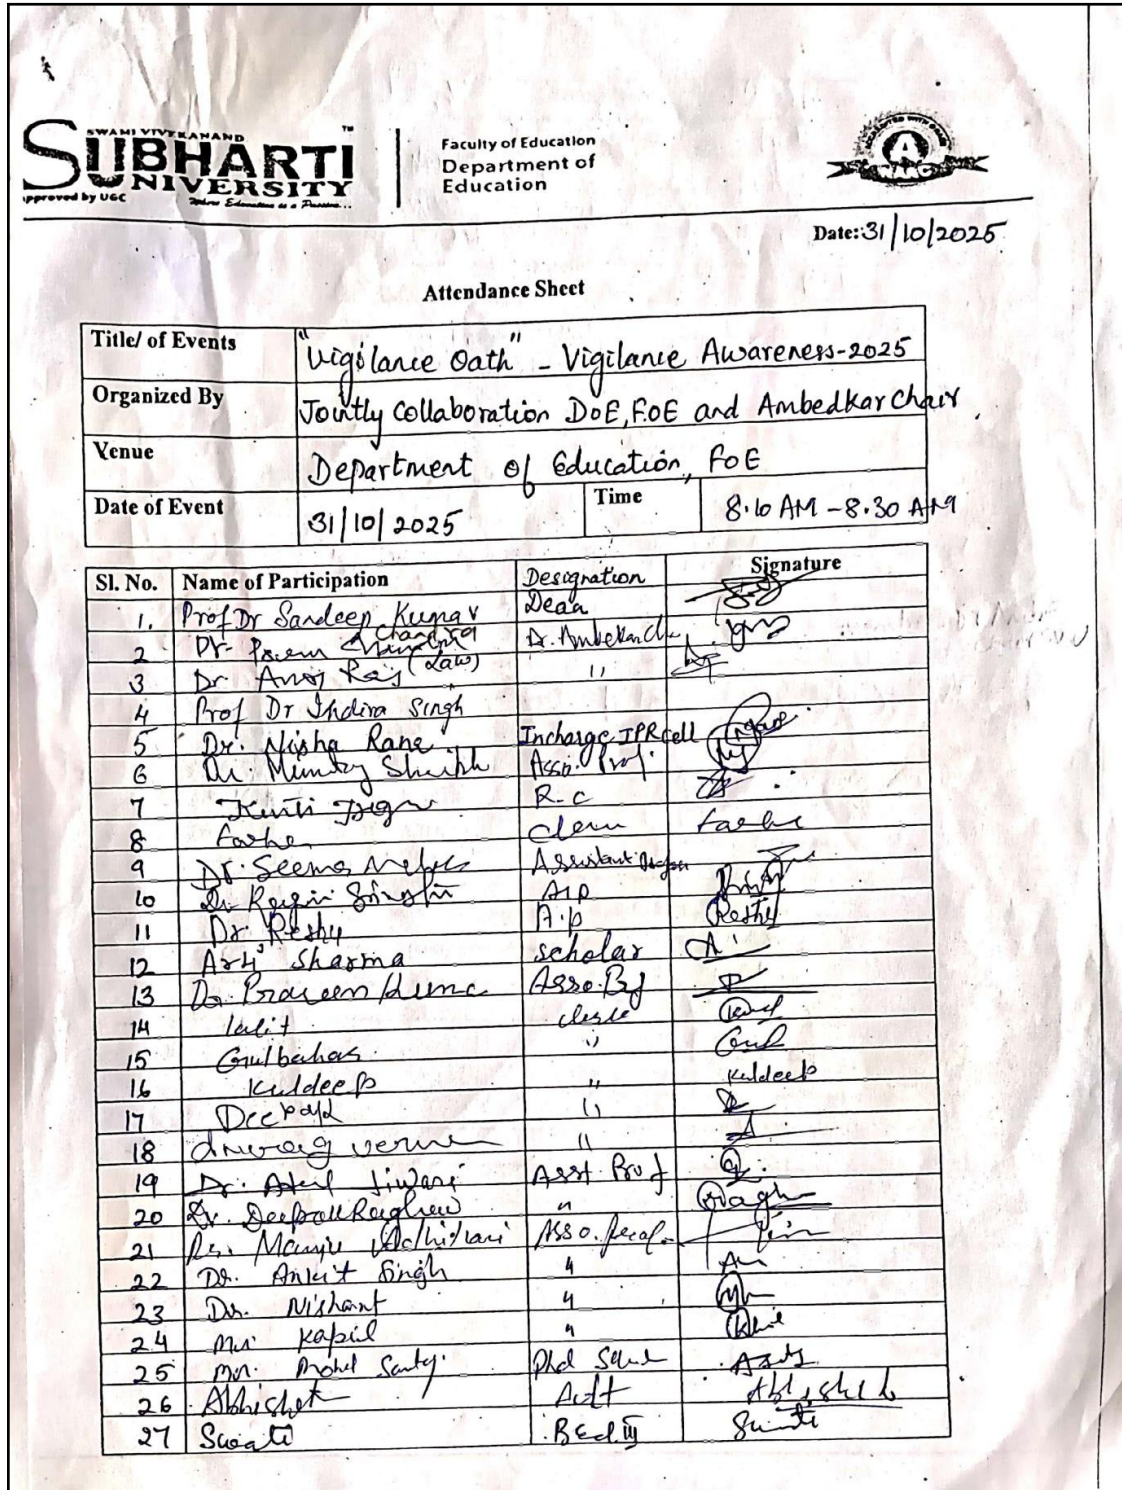 SWAMI VIVEKANAND
SUBHARTI
UNIVERSITY
TM
Approved by UGC
Where Education is a Passion...
Faculty of Education
Department of
Education
A
NAAC
Date: 31/10/2025
Attendance Sheet
Title/ of Events "Vigilance Oath" - Vigilance Awareness-2025
Organized By Jointly Collaboration DoE, FoE and Ambedkar Chair
Venue Department of Education, FoE
Date of Event 31/10/2025 Time 8.10 AM - 8.30 AM
Sl. No. Name of Participation Designation Signature
1. Prof Dr Sandeep Kumar Dean
2 Dr. Prem Chandra Dr. Ambedkar
3 Dr. Anoj Raj (Law) "
4 Prof Dr Indira Singh
5 Dr. Nisha Rane Incharge IPR Cell
6 Dr. Shaikh Asso. Prof.
7 R.C
8 Farha Farha
9 Dr. Seema Assistant
10 Dr. Ragini A.P
11 Dr. Reshu A.P Reshu
12 Arti Sharma scholar
13 Dr. Praveen Kumar Asso. Prof
14 Lalit
15 Gulbahar " Gul
16 Kuldeep " Kuldeep
17 Deepak "
18 Anurag Verma "
19 Dr. Atul Tiwari Asst. Prof
20 Dr. Deepak Raghav "
21 Dr. Manju Adhikari Asso. Prof.
22 Dr. Ankit Singh "
23 Dr. Nishant "
24 Mr. Kapil "
25 Mr. Phd
26 Abhishek Abhishek
27 Swati B.Ed III Swati